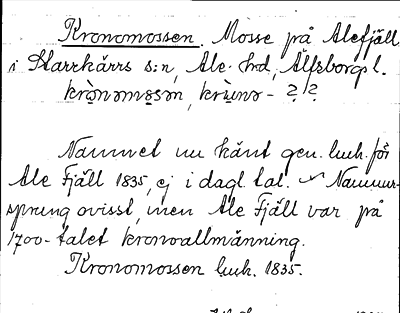 Kronomossen. Mosse på Alefjäll
i Starrkärrs s:n, Ale hd, Älfsborgs l.
Namnet nu känt gen. luuk. för
Ale Fjäll 1835, ej i dagl. tal. ~ Namnur-
sprung ovisst, men Ale Fjäll var på
1700-talet kronoallmänning.
Kronomossen luuk. 1835.